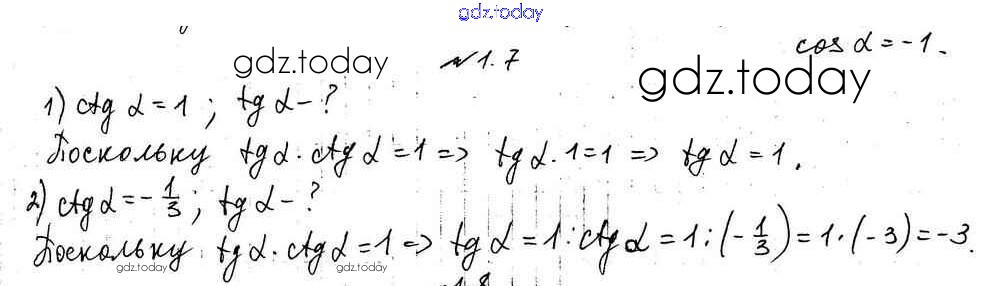 gdz.today
cos α = -1.
gdz.today №1.7 gdz.today
1) ctg α = 1 ; tg α - ?
Поскольку tg α · ctg α = 1 => tg α · 1 = 1 => tg α = 1.
2) ctg α = -1/3 ; tg α - ?
Поскольку tg α · ctg α = 1 => tg α = 1 : ctg α = 1 : (-1/3) = 1 · (-3) = -3.
gdz.today gdz.today
1.8